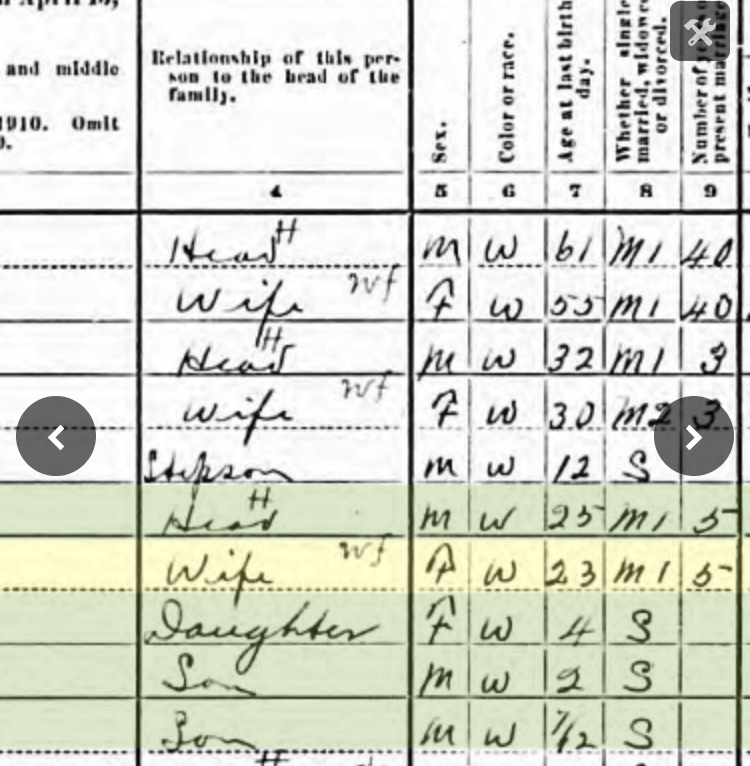 and middle
1910. Omit
Relationship of this per-
son to the head of the
family.
Sex.
Color or race.
Age at last birth
day.
Whether single
married, widowed
or divorced.
Number of
present marriage
4 5 6 7 8 9
Head H M W 61 M1 40
Wife wf F W 55 M1 40
Head H M W 32 M1 3
Wife wf F W 30 M2 3
Stepson M W 12 S
Head H M W 25 M1 5
Wife wf F W 23 M1 5
Daughter F W 4 S
Son M W 2 S
Son M W 7/12 S